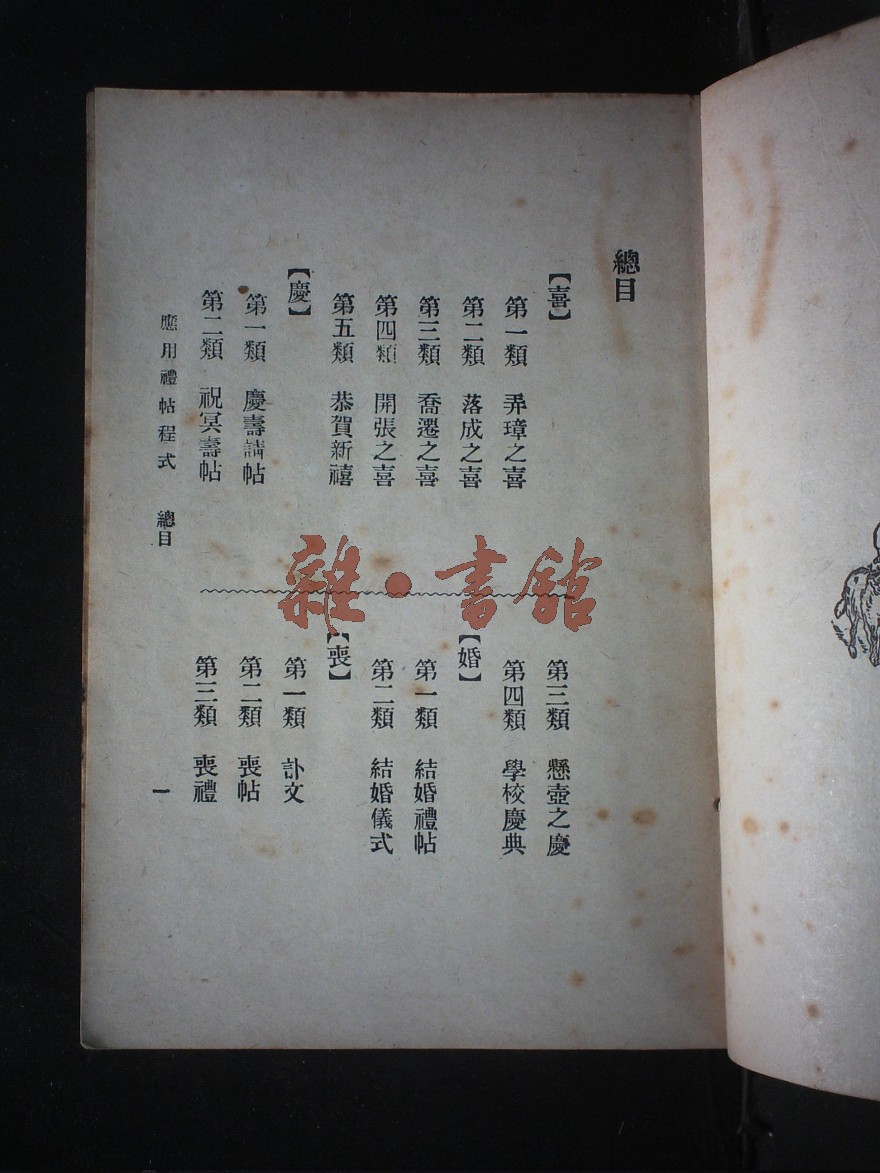 總目
【喜】
第一類　弄璋之喜
第二類　落成之喜
第三類　喬遷之喜
第四類　開張之喜
第五類　恭賀新禧
【慶】
第一類　慶壽請帖
第二類　祝冥壽帖
第三類　懸壺之慶
第四類　學校慶典
【婚】
第一類　結婚禮帖
第二類　結婚儀式
【喪】
第一類　訃文
第二類　喪帖
第三類　喪禮
應用禮帖程式　總目
一
雜·書館